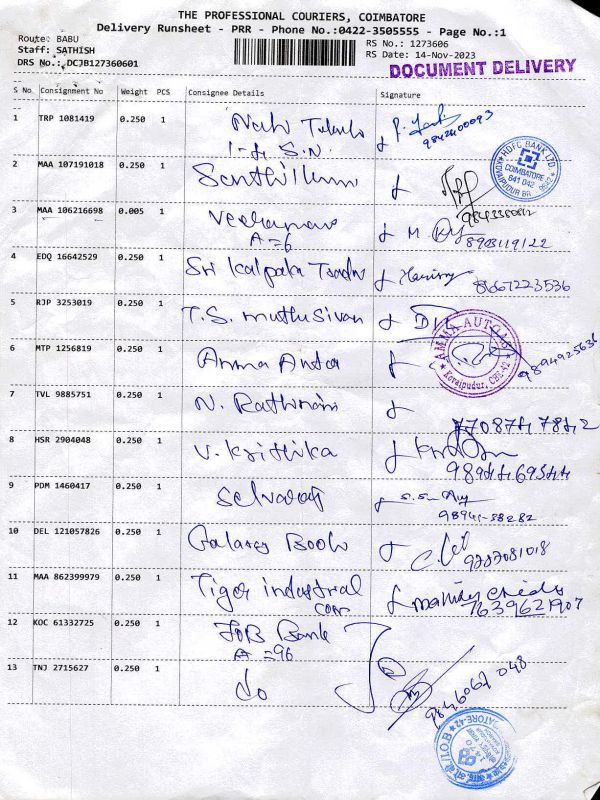 THE PROFESSIONAL COURIERS, COIMBATORE
Delivery Runsheet - PRR - Phone No.:0422-3505555 - Page No.:1
Route: BABU
Staff: SATHISH
DRS No.:DCJB127360601
RS No.: 1273606
RS Date: 14-Nov-2023
DOCUMENT DELIVERY
S No Consignment No Weight PCS Consignee Details Signature
1 TRP 1081419 0.250 1
9842400093
HDFC BANK LTD. COIMBATORE 641 042
2 MAA 107191018 0.250 1 Senthilkumar
3 MAA 106216698 0.005 1
A=6 8903119122
4 EDQ 16642529 0.250 1 Sri Kalpaka Traders 8667223536
5 RJP 3253019 0.250 1 T.S. muthusivan
AMMA AUTOS Kovaipudur, CBE-42
6 MTP 1256819 0.250 1 Amma Autos 9894925636
7 TVL 9885751 0.250 1 N. Rathinam
8 HSR 2904048 0.250 1 V. Krithika
9 PDM 1460417 0.250 1 Selvaraj
98941-38282
10 DEL 121057826 0.250 1 Galaxy Book 9787081018
11 MAA 862399979 0.250 1 Tiger industrial
corp 7639621907
12 KOC 61332725 0.250 1 IOB Bank
A=96
13 TNJ 2715627 0.250 1 do 9846067048